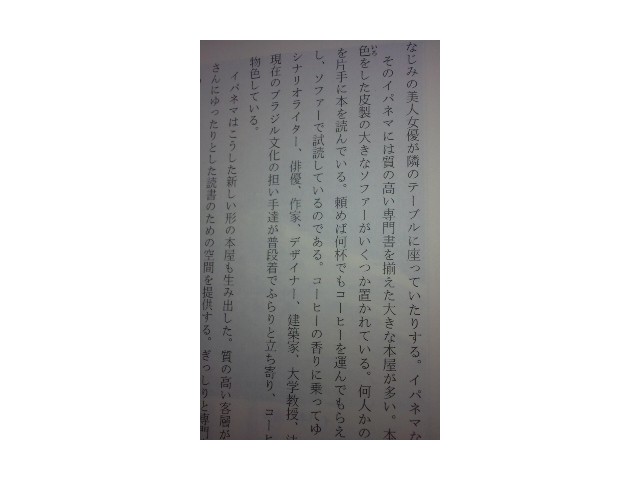 なじみの美人女優が隣のテーブルに座っていたりする。イパネマな
そのイパネマには質の高い専門書を揃えた大きな本屋が多い。本
色をした皮製の大きなソファーがいくつか置かれている。何人かの
を片手に本を読んでいる。頼めば何杯でもコーヒーを運んでもらえ
し、ソファーで試読しているのである。コーヒーの香りに乗ってゆ
シナリオライター、俳優、作家、デザイナー、建築家、大学教授、
現在のブラジル文化の担い手達が普段着でふらりと立ち寄り、コーヒ
物色している。
イパネマはこうした新しい形の本屋も生み出した。質の高い客層が
さんにゆったりとした読書のための空間を提供する。ぎっしりと専門